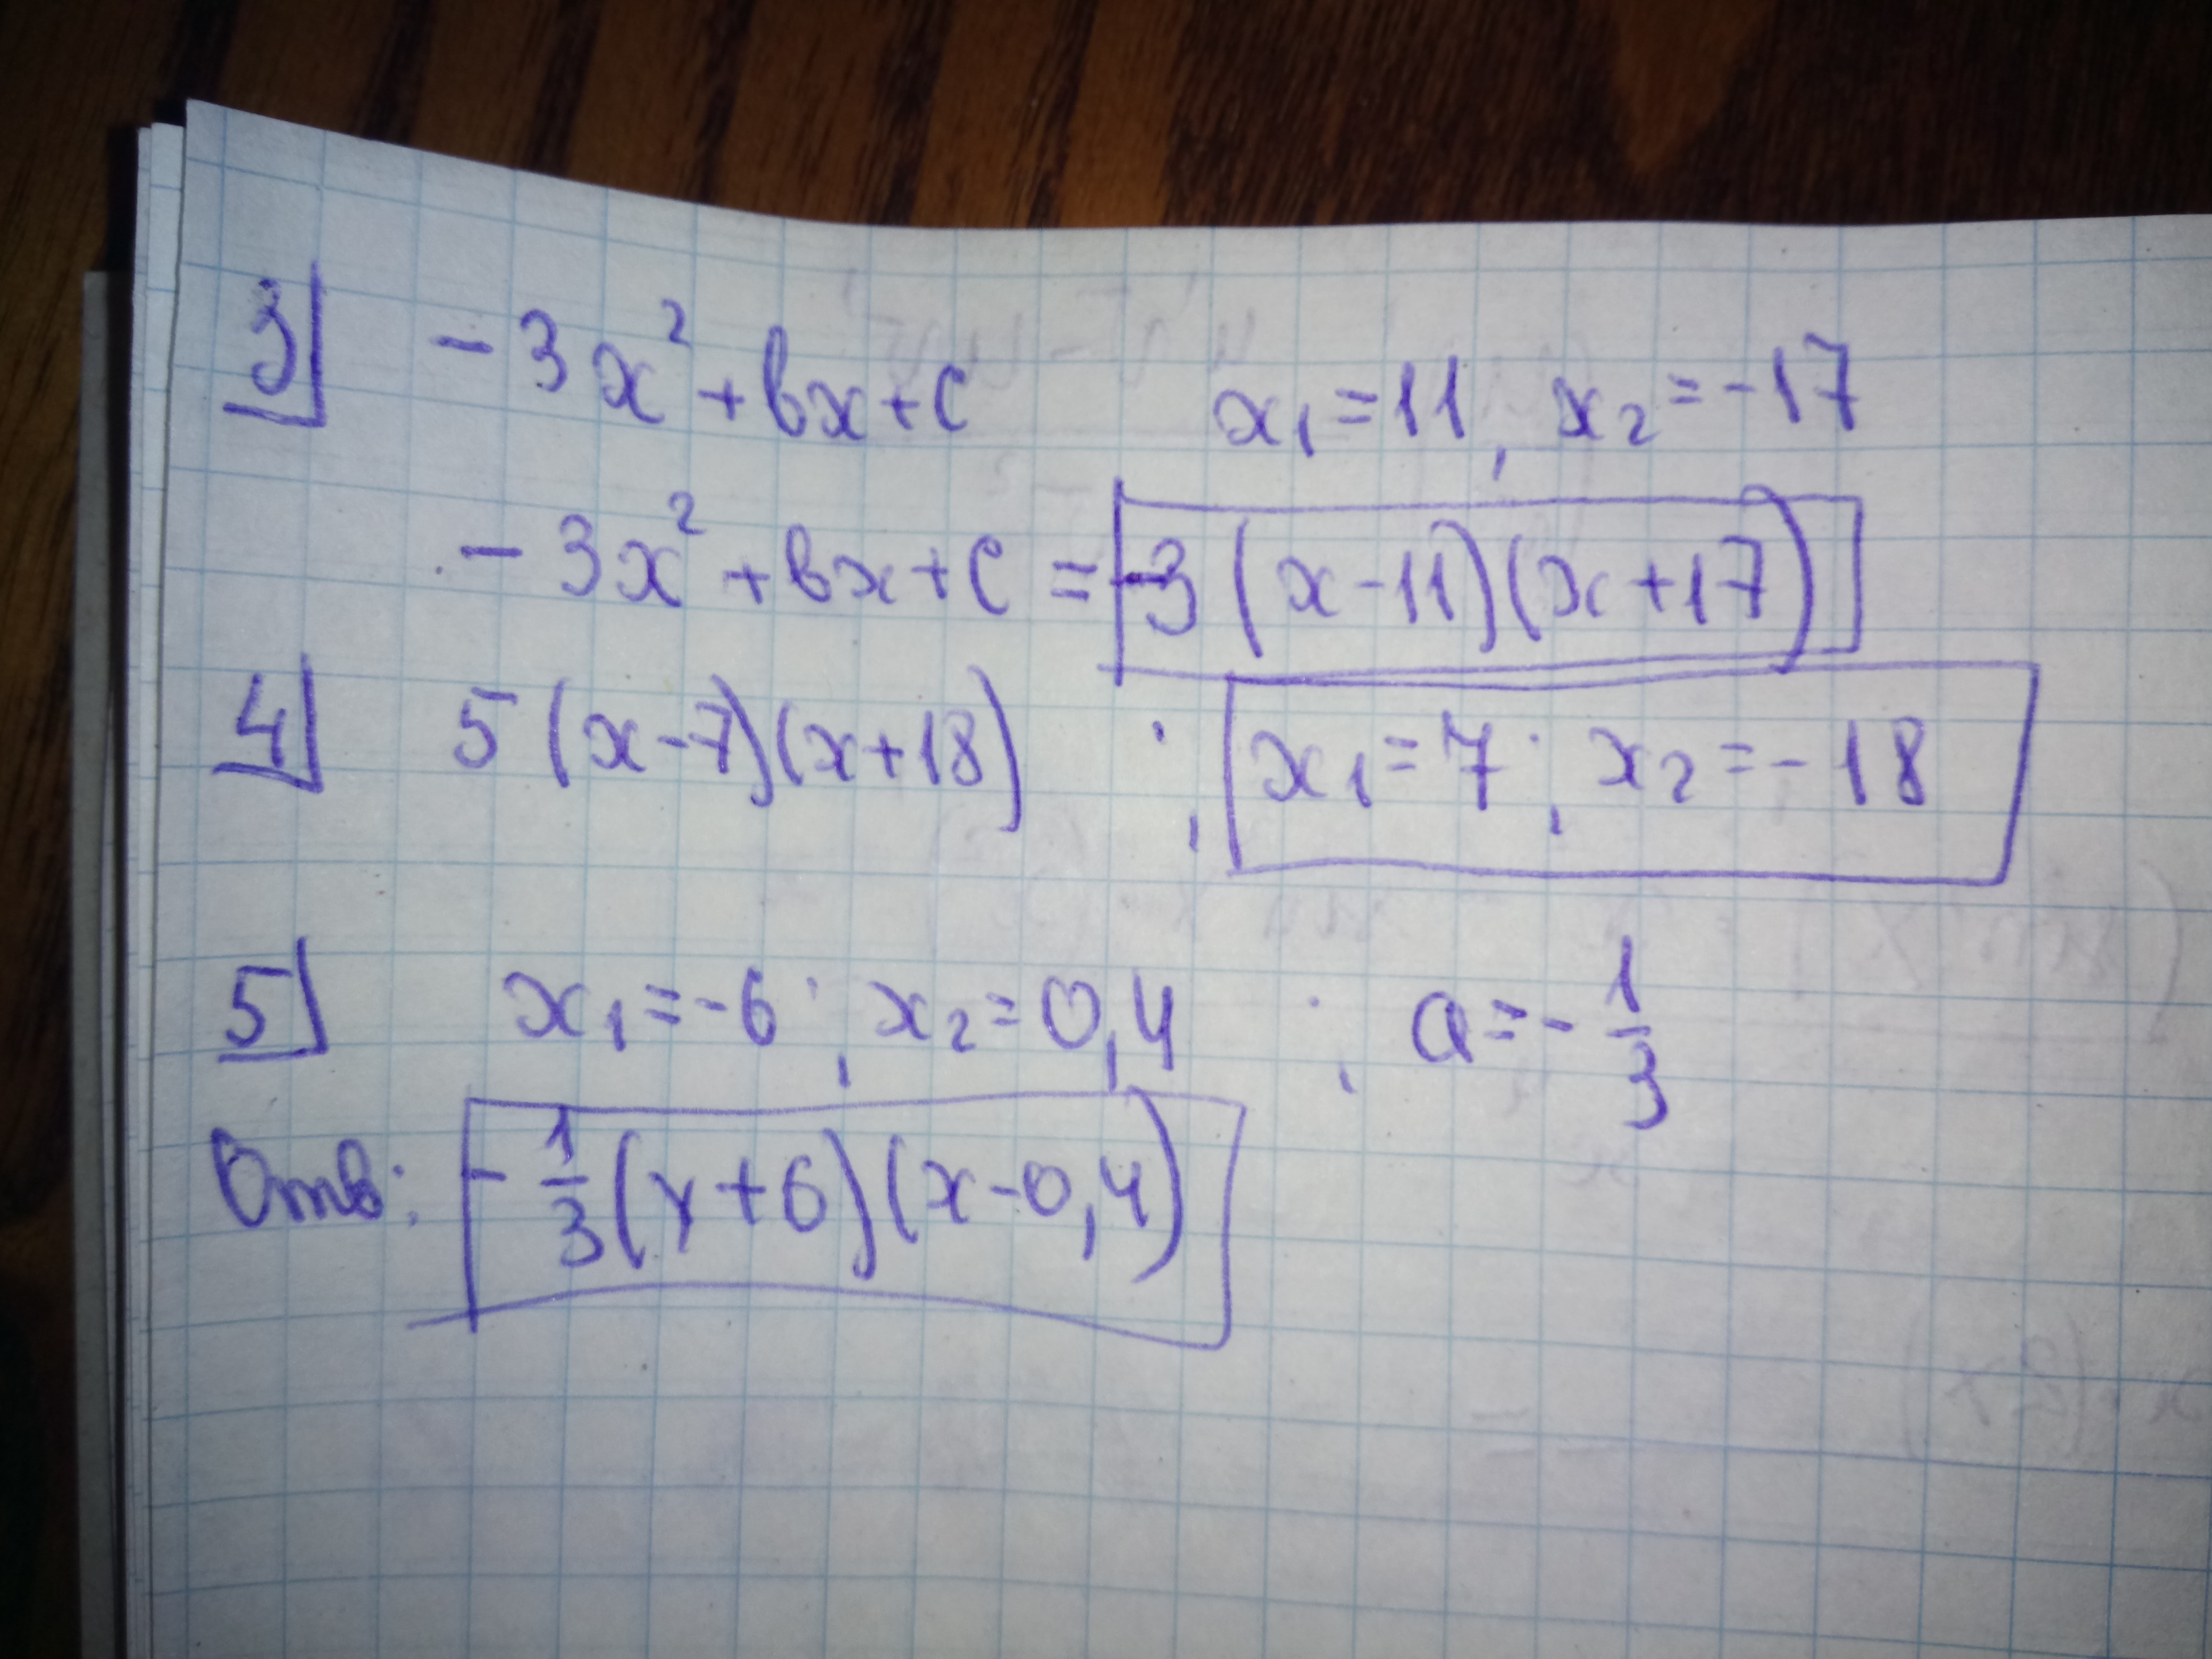 3] -3x² + bx + c x₁ = 11, x₂ = -17
-3x² + bx + c = -3(x-11)(x+17)
4] 5(x-7)(x+18) ; x₁ = 7; x₂ = -18
5] x₁ = -6; x₂ = 0,4 ; a = -1/3
Отв: -1/3(x+6)(x-0,4)